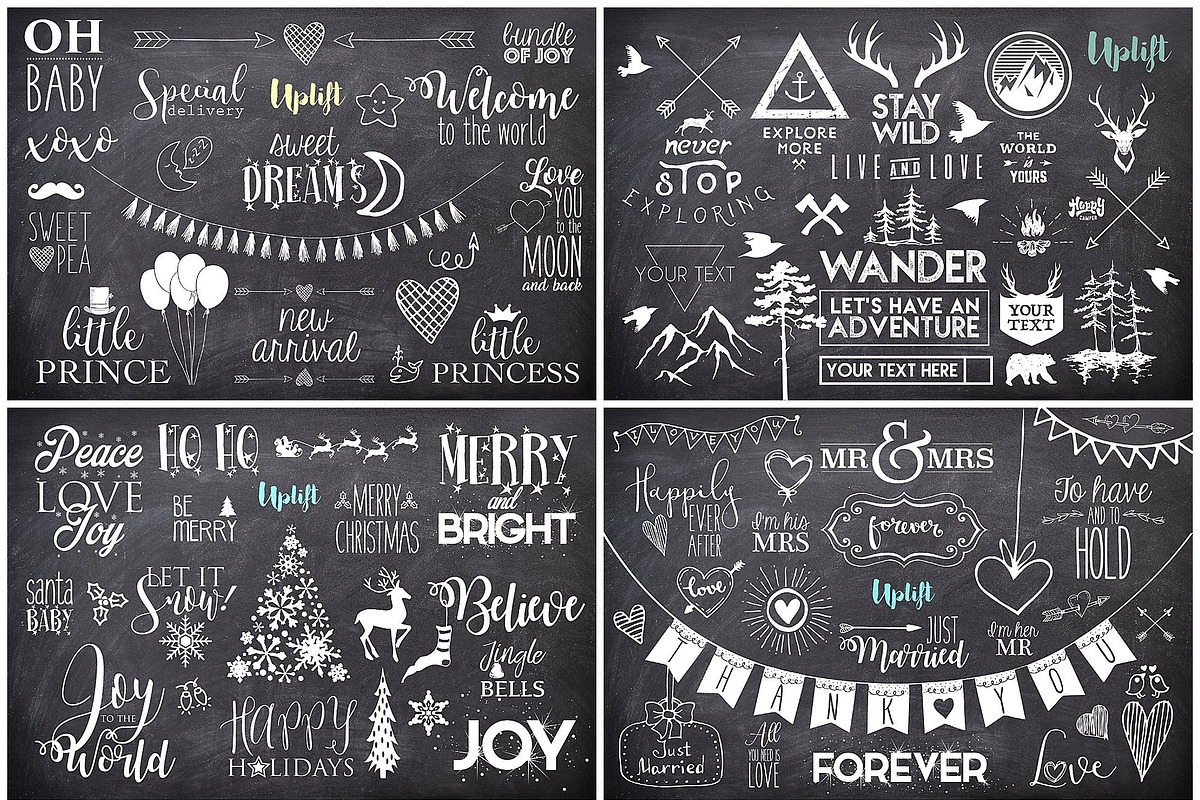 OH
BABY
bundle
OF JOY
Special
delivery
Uplift
Welcome
to the world
xoxo
zzz
sweet
DREAMS
Love
YOU
to the
MOON
and back
SWEET
PEA
little
PRINCE
new
arrival
little
PRINCESS
Uplift
EXPLORE
MORE
STAY
WILD
THE
WORLD
is
YOURS
never
STOP
EXPLORING
LIVE AND LOVE
Happy
CAMPER
YOUR TEXT
WANDER
LET'S HAVE AN
ADVENTURE
YOUR TEXT HERE
YOUR
TEXT
Peace
LOVE
Joy
HO HO
BE
MERRY
Uplift
MERRY
CHRISTMAS
MERRY
and
BRIGHT
santa
BABY
LET IT
Snow!
Believe
Jingle
BELLS
Joy
TO THE
World
Happy
HOLIDAYS
JOY
I LOVE YOU
MR & MRS
Happily
EVER
AFTER
I'm his
MRS
forever
To have
AND TO
HOLD
love
Uplift
JUST
Married
I'm her
MR
THANK YOU
Just
Married
All
YOU NEED IS
LOVE
FOREVER
Love